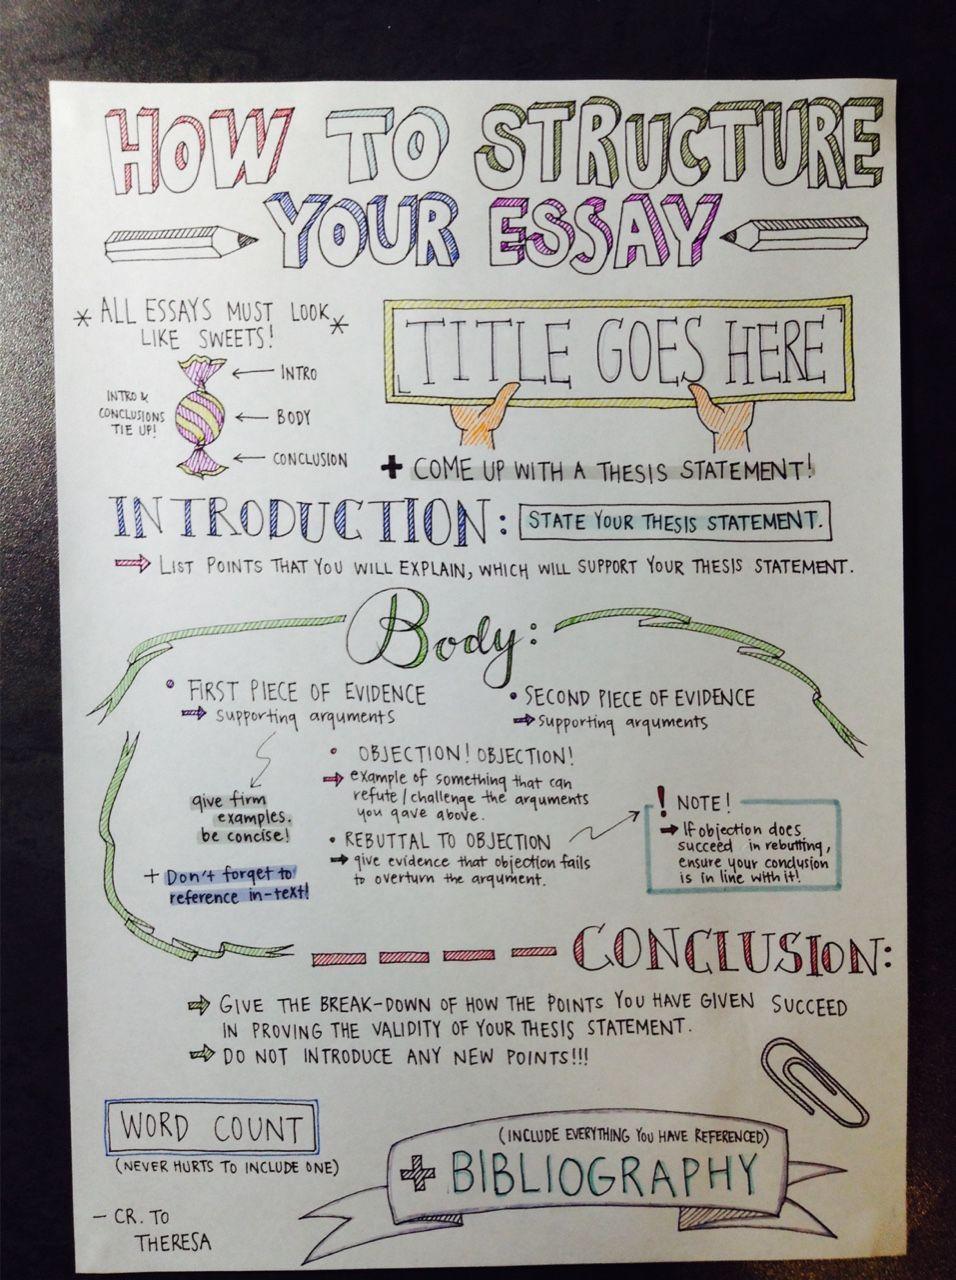 HOW TO STRUCTURE
YOUR ESSAY
* ALL ESSAYS MUST LOOK *
LIKE SWEETS!
INTRO
INTRO &
CONCLUSIONS
TIE UP!
BODY
CONCLUSION
TITLE GOES HERE
+ COME UP WITH A THESIS STATEMENT!
INTRODUCTION:
STATE YOUR THESIS STATEMENT.
→ LIST POINTS THAT YOU WILL EXPLAIN, WHICH WILL SUPPORT YOUR THESIS STATEMENT.
Body:
• FIRST PIECE OF EVIDENCE
→ supporting arguments
• SECOND PIECE OF EVIDENCE
→ supporting arguments
give firm
examples.
be concise!
+ Don't forget to
reference in-text!
• OBJECTION! OBJECTION!
→ example of something that can
refute/challenge the arguments
you gave above.
• REBUTTAL TO OBJECTION
→ give evidence that objection fails
to overturn the argument.
! NOTE!
→ If objection does
succeed in rebutting,
ensure your conclusion
is in line with it!
CONCLUSION:
→ GIVE THE BREAK-DOWN OF HOW THE POINTS YOU HAVE GIVEN SUCCEED
IN PROVING THE VALIDITY OF YOUR THESIS STATEMENT.
→ DO NOT INTRODUCE ANY NEW POINTS!!!
WORD COUNT
(NEVER HURTS TO INCLUDE ONE)
(INCLUDE EVERYTHING YOU HAVE REFERENCED)
+ BIBLIOGRAPHY
- CR. TO
THERESA